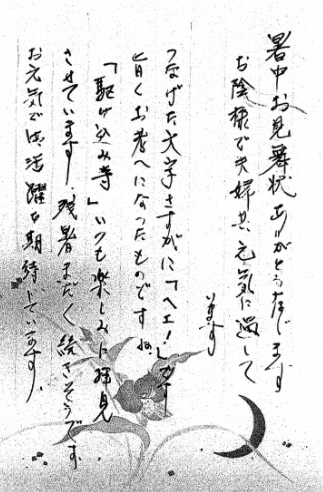 暑中お見舞状ありがとう存じます
お陰様で夫婦共、元気に過して
います
つなげた文字さすがに「ヘエ！」です
旨くお考へになったものですね。
「駆け込み寺」いつも楽しみに拝見
させています。残暑まだ〱続きそうです
お元気で御活躍を期待しています。